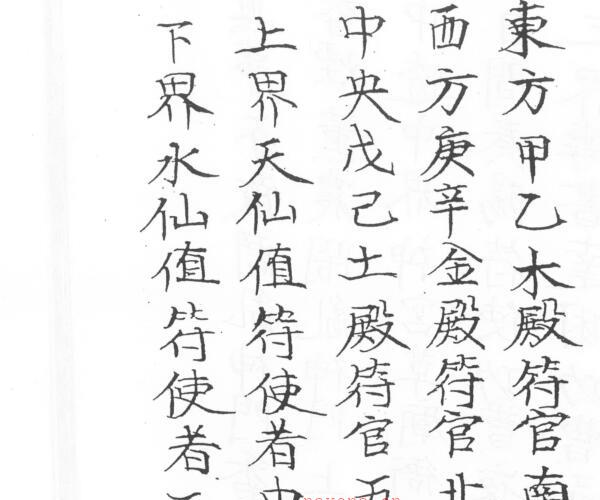 東方甲乙木殿符官南
西方庚辛金殿符官北
中央戊己土殿符官
上界天仙值符使者中
下界水仙值符使者